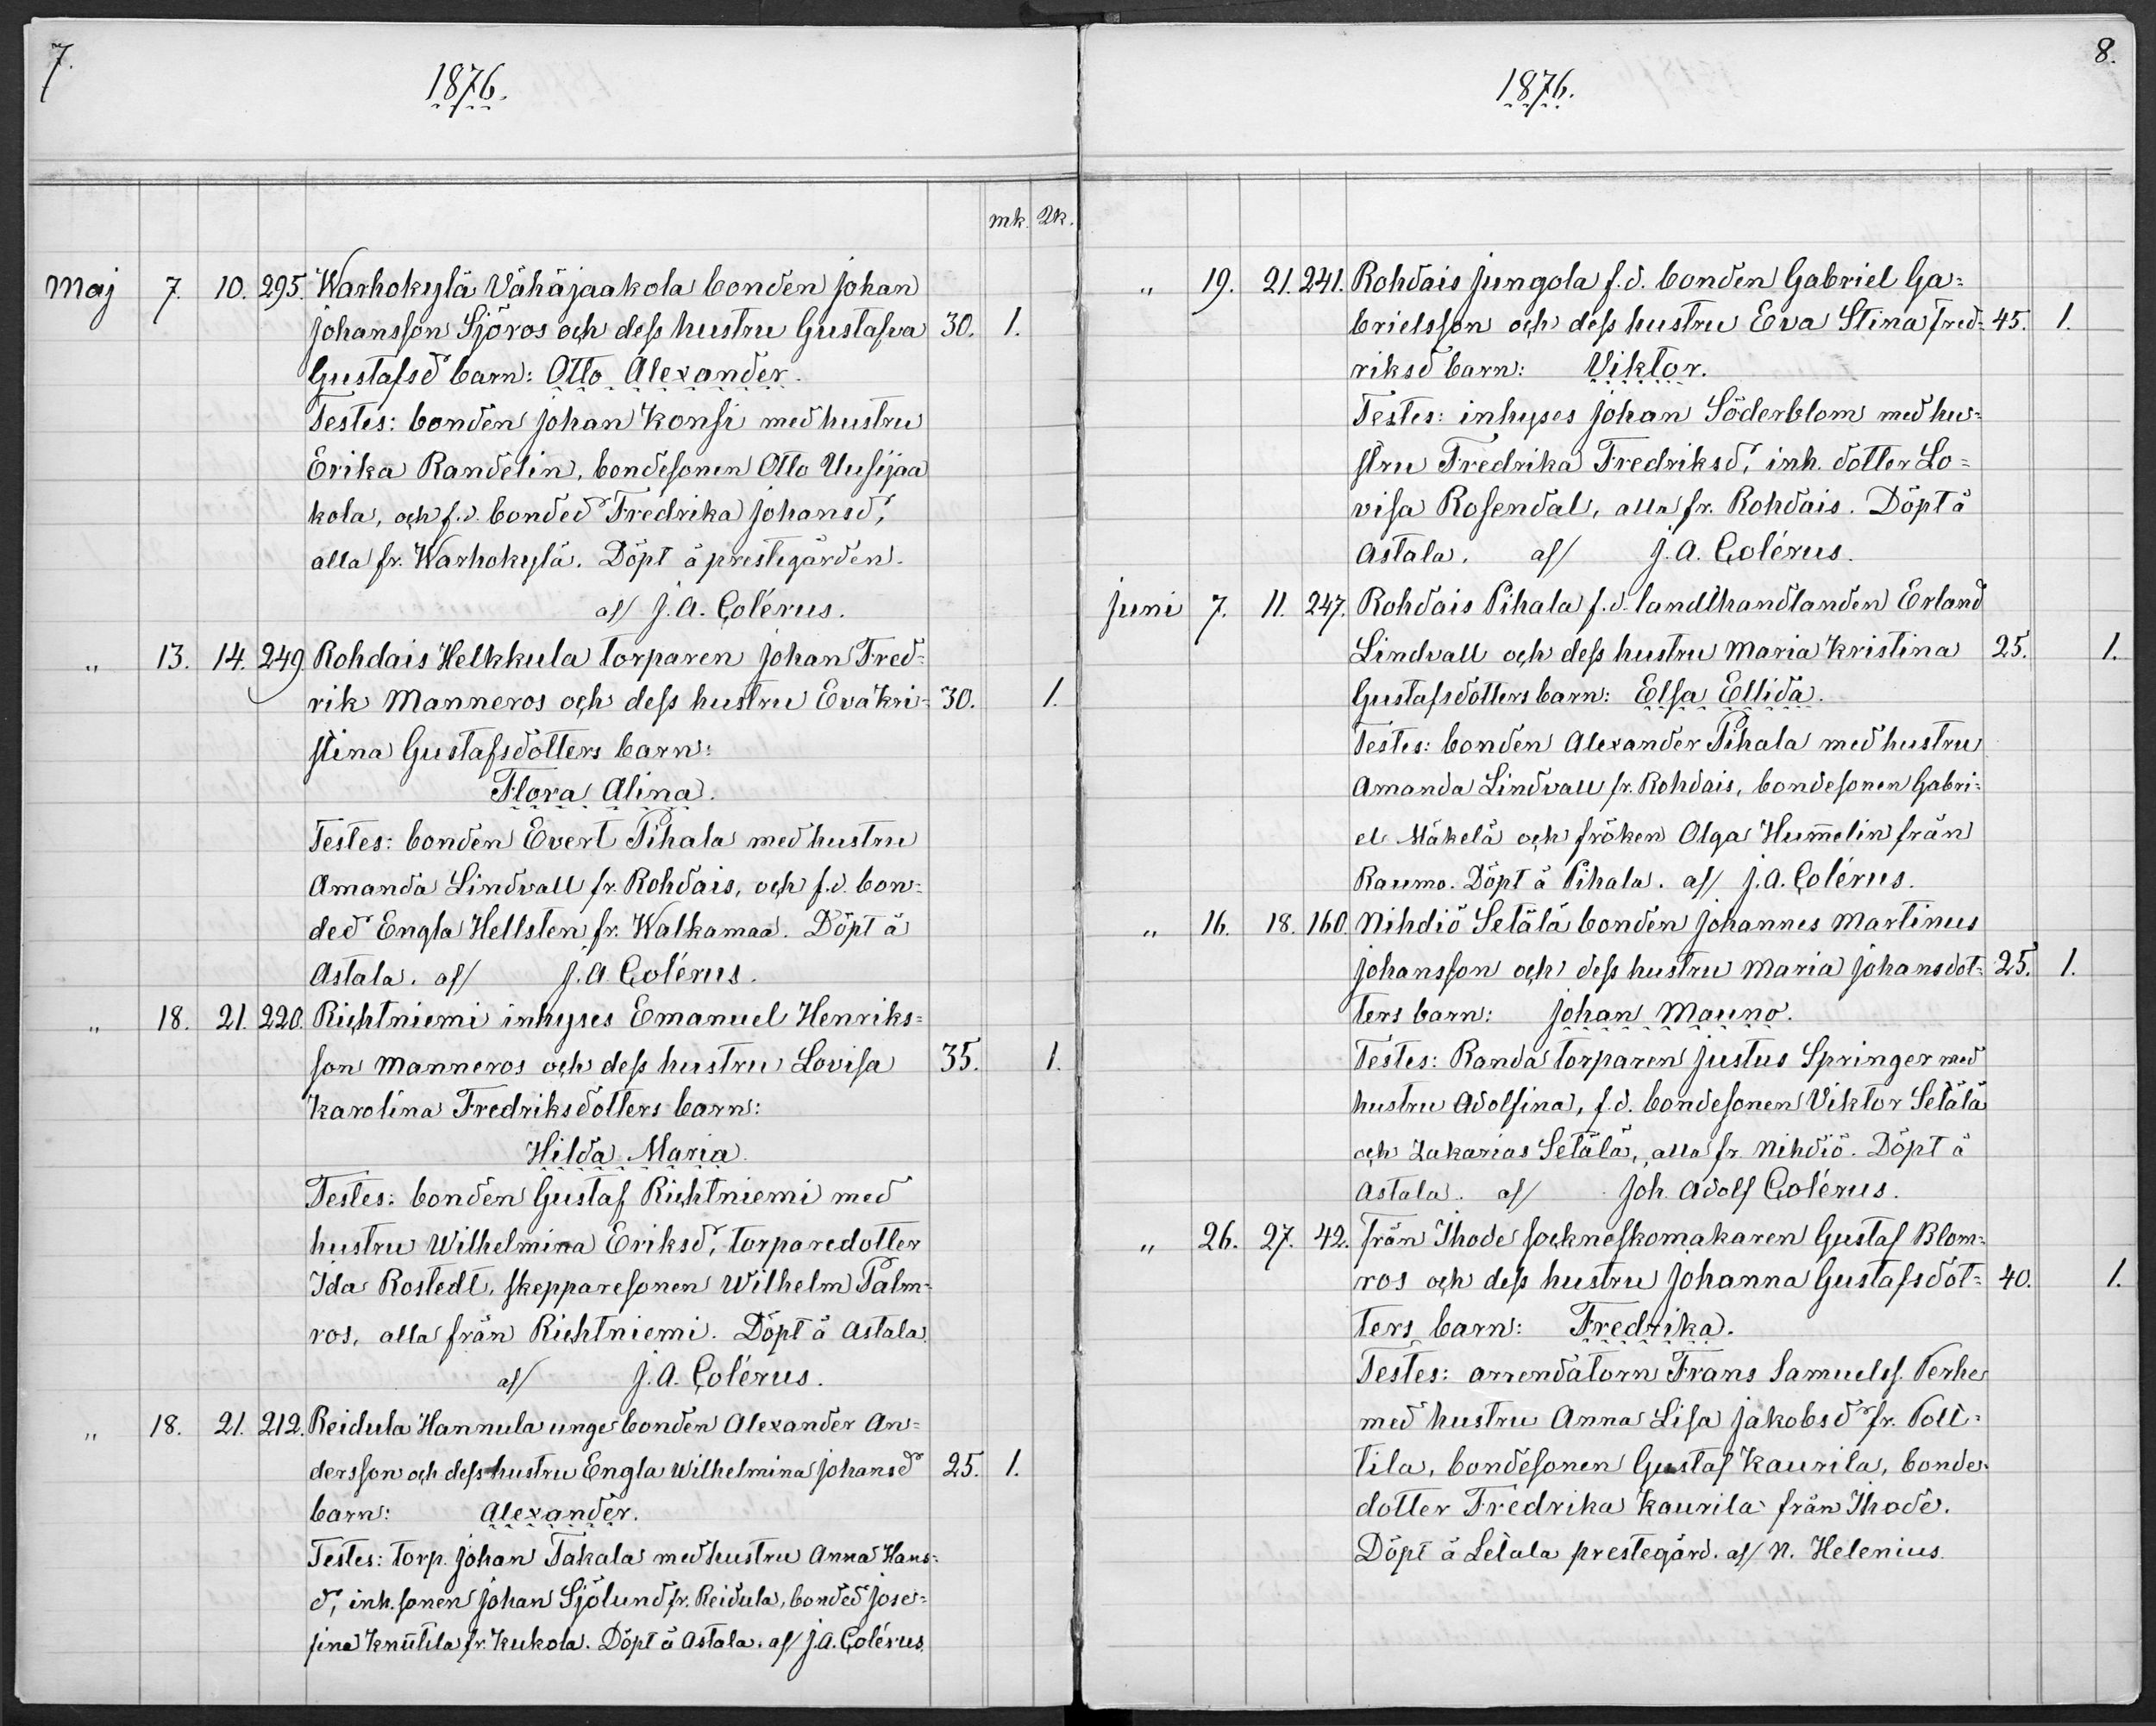 7.
1876.
mk. Qk.
Maj 7. 10. 295. Warhokylä Vähäjaakola bonden Johan
Johansson Sjöros och dess hustru Gustafva 30. 1.
Gustafsd barn: Otto Alexander.
Testes: bonden Johan Konsi med hustru
Erika Randelin, bondesonen Otto Uusijaa
kola, och f.d. bonded Fredrika Johansd,
alla fr. Warhokylä. Döpt å prestegården.
af/ J.A. Colérus.
" 13. 14. 249. Rohdais Helkkula torparen Johan Fred=
rik Manneros och dess hustru Eva Kri= 30. 1.
stina Gustafsdotters barn:
Flora Alina.
Testes: bonden Evert Pihala med hustru
Amanda Lindvall fr. Rohdais, och f.d. bon=
ded Engla Hellsten fr. Walkamaa. Döpt å
Astala. af/ J.A. Colérus.
" 18. 21. 220. Richtniemi inhyses Emanuel Henriks=
son Manneros och dess hustru Lovisa 35. 1.
Karolina Fredriksdotters barn:
Hilda Maria.
Testes: bonden Gustaf Richtniemi med
hustru Wilhelmina Eriksd, torparedotter
Ida Rostedt, skepparesonen Wilhelm Palm=
ros, alla från Richtniemi. Döpt å Astala
af/ J.A. Colérus.
" 18. 21. 212. Reidula Hannula unge bonden Alexander An=
dersson och dess hustru Engla Wilhelmina Johansd 25. 1.
barn: Alexander.
Testes: torp. Johan Takala med hustru Anna Hans=
d, inh. sonen Johan Sjölund fr. Reidula, bonded Jose=
fina Knuutila fr. Kukola. Döpt å Astala. af/ J.A. Colérus.
8.
1876.
" 19. 21. 241. Rohdais Jungola f.d. bonden Gabriel Ga=
brielsson och dess hustru Eva Stina Fred= 45. 1.
riksd barn: Viktor.
Testes: inhyses Johan Söderblom med hu=
stru Fredrika Fredriksd, inh. dotter Lo=
visa Rosendal, alla fr. Rohdais. Döpt å
Astala. af/ J.A. Colérus.
Juni 7. 11. 247. Rohdais Pihala f.d. landthandlanden Erland
Lindvall och dess hustru Maria Kristina 25. 1.
Gustafsdotters barn: Elsa Ellida.
Testes: bonden Alexander Pihala med hustru
Amanda Lindvall fr. Rohdais, bondesonen Gabri=
el Mäkelä och fröken Olga Hum̄elin från
Raumo. Döpt å Pihala. af/ J.A. Colérus.
" 16. 18. 160. Nihdiö Setälä bonden Johannes Martinus
Johansson och dess hustru Maria Johansdot= 25. 1.
ters barn: Johan Mauno.
Testes: Randa torparen Justus Springer med
hustru Adolfina, f.d. bondesonen Viktor Setälä
och Zakarias Setälä, alla fr. Nihdiö. Döpt å
Astala. af/ Joh. Adolf Colérus.
" 26. 27. 42. Från Ihode sockneskomakaren Gustaf Blom=
ros och dess hustru Johanna Gustafsdot= 40. 1.
ters barn: Fredrika.
Testes: arrendatorn Frans Samuelss. Perhe
med hustru Anna Lisa Jakobsd fr. Polt=
tila, bondesonen Gustaf Kaurila, bonde=
dotter Fredrika Kaurila från Ihode.
Döpt å Letala prestegård. af/ N. Helenius.